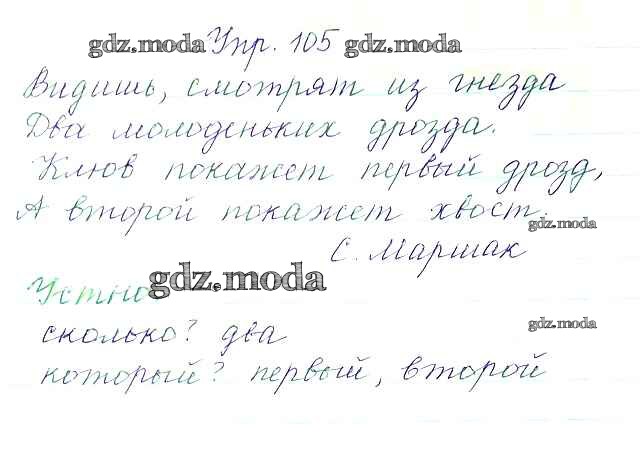 gdz.moda Упр. 105 gdz.moda
Видишь, смотрят из гнезда
Два молоденьких дрозда.
Клюв покажет первый дрозд,
А второй покажет хвост.
gdz.moda
С. Маршак
Устно. gdz.moda
сколько? два
gdz.moda
который? первый, второй